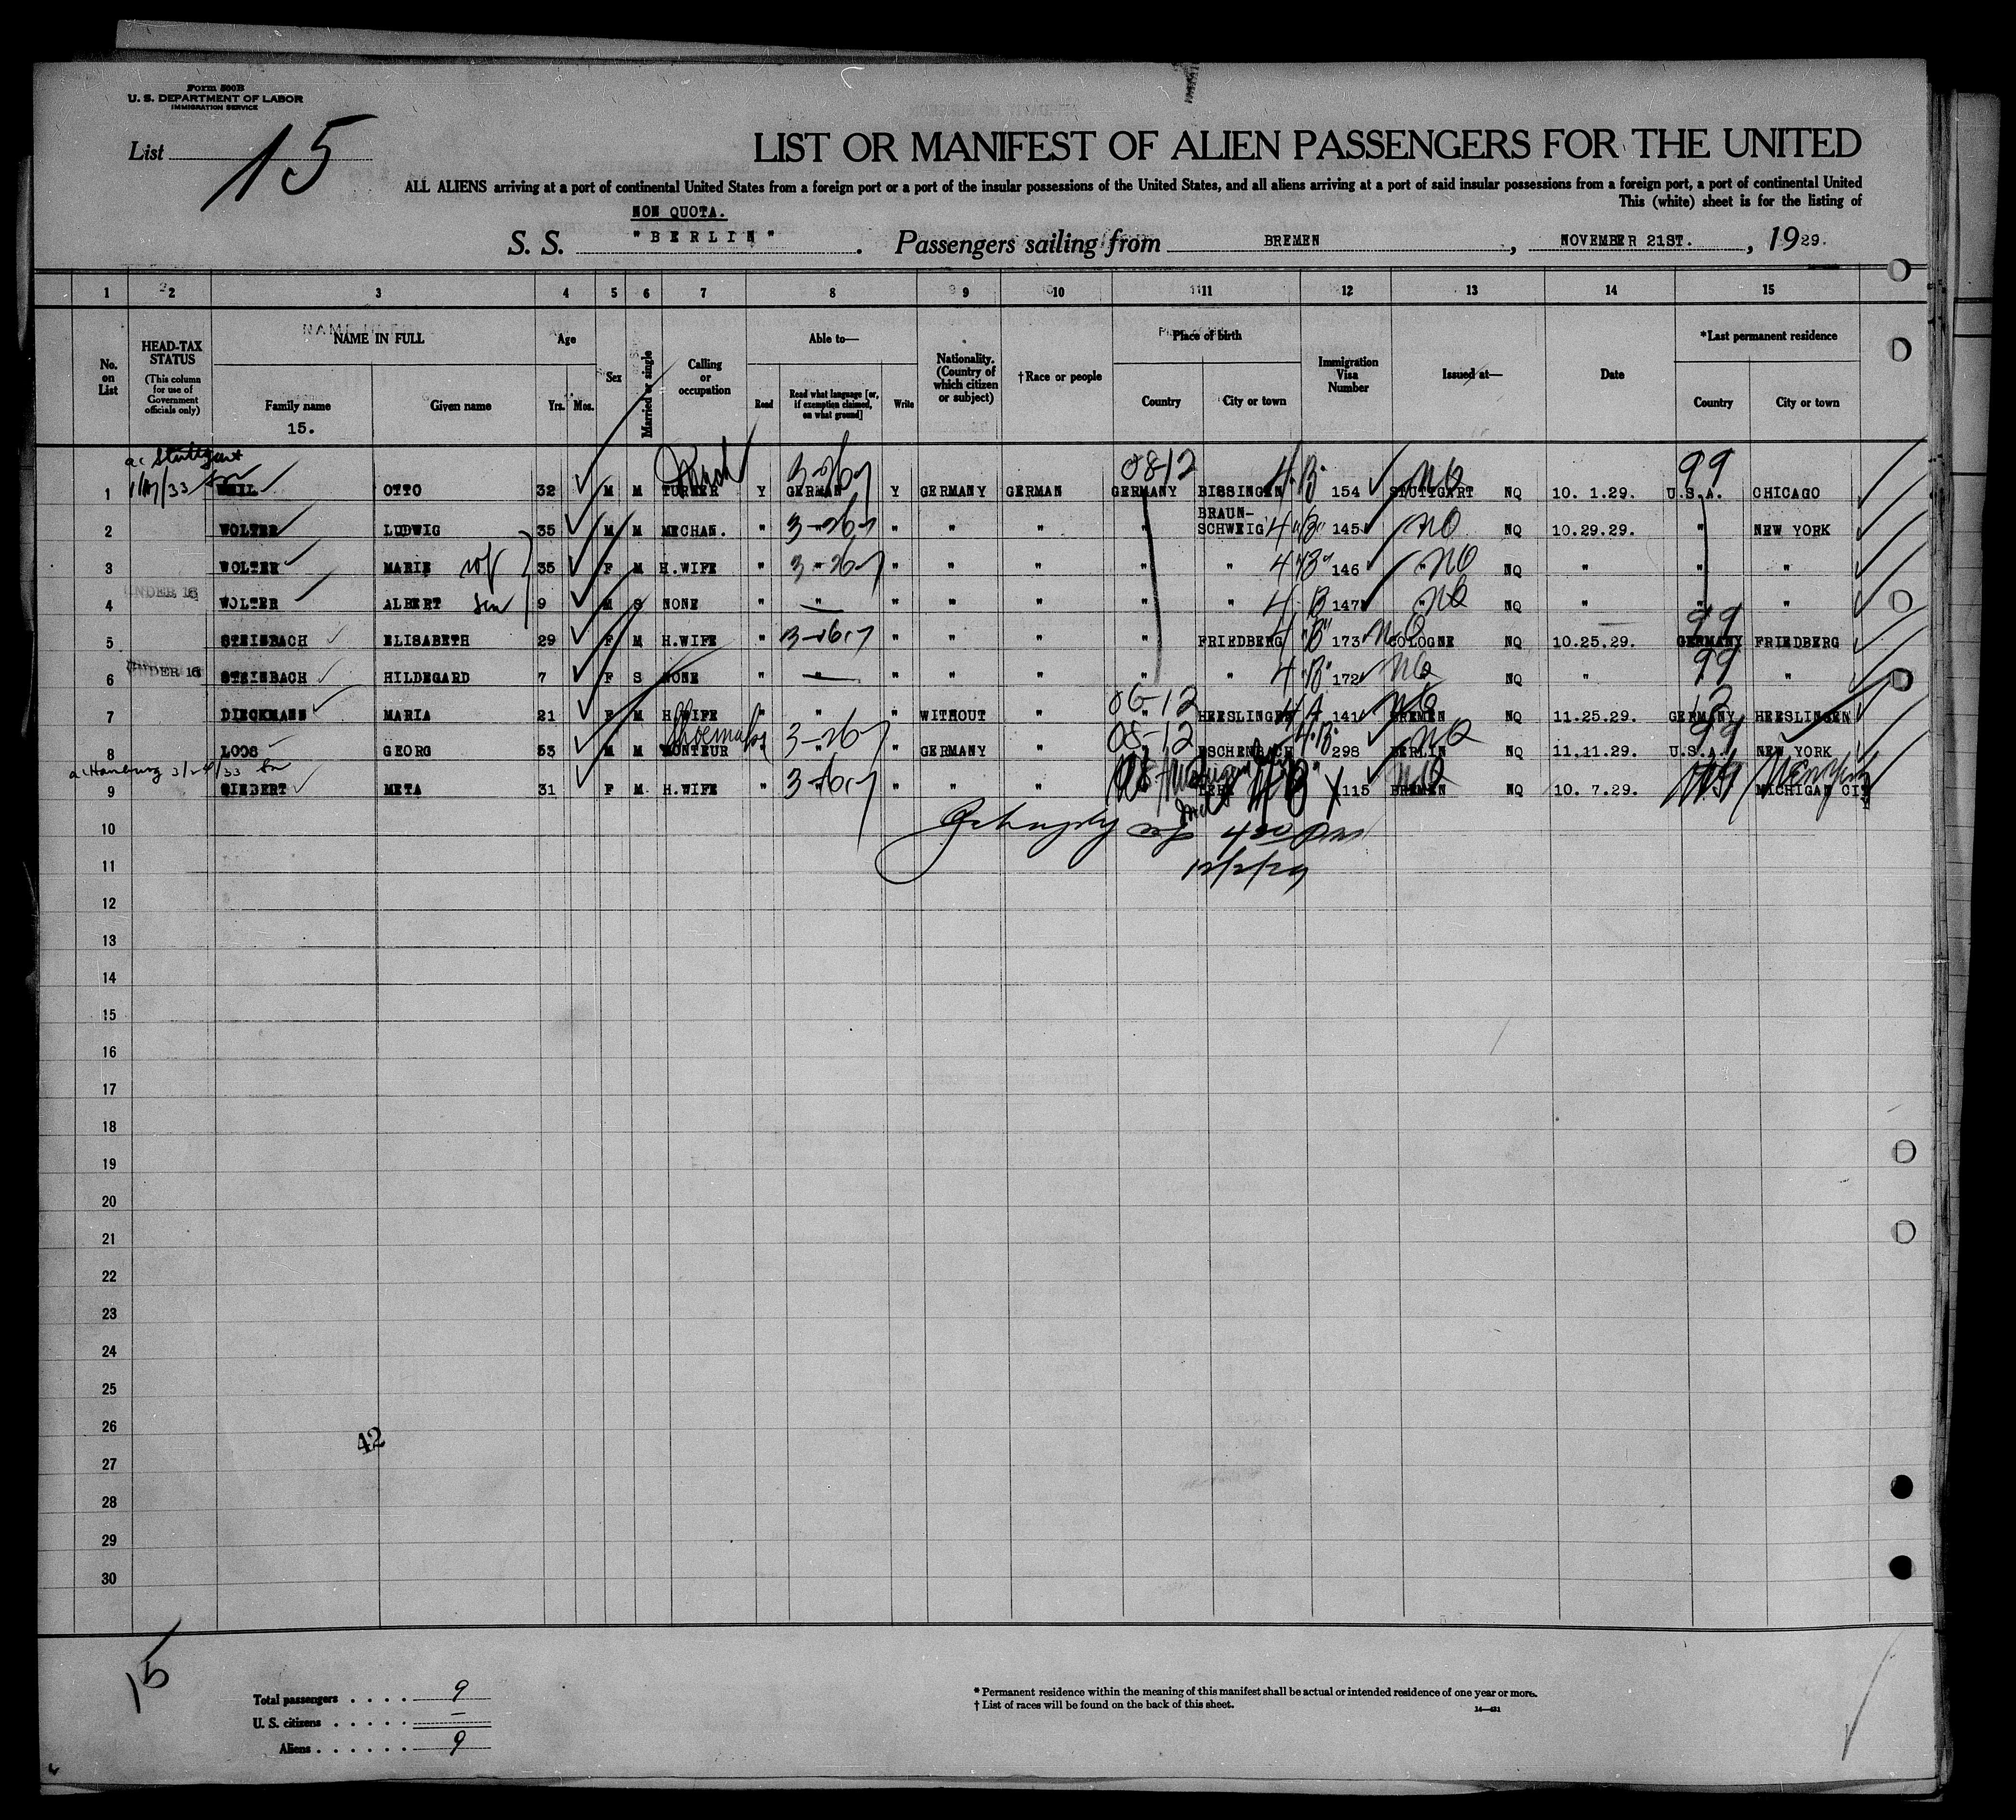 Form 500B
U. S. DEPARTMENT OF LABOR
IMMIGRATION SERVICE
List 15
LIST OR MANIFEST OF ALIEN PASSENGERS FOR THE UNITED
ALL ALIENS arriving at a port of continental United States from a foreign port or a port of the insular possessions of the United States, and all aliens arriving at a port of said insular possessions from a foreign port, a port of continental United
This (white) sheet is for the listing of
NON QUOTA.
S. S. "BERLIN". Passengers sailing from BREMEN, NOVEMBER 21ST., 1929.
1 2 3 4 5 6 7 8 9 10 11 12 13 14 15
No. on List
HEAD-TAX STATUS (This column for use of Government officials only)
NAME IN FULL
Family name
15.
Given name
Age
Yrs. Mos.
Sex
Married or single
Calling or occupation
Able to—
Read
Read what language [or, if exemption claimed, on what ground]
Write
Nationality. (Country of which citizen or subject)
†Race or people
Place of birth
Country
City or town
Immigration Visa Number
Issued at—
Date
*Last permanent residence
Country
City or town
a. Stuttgart
3-267 0812 4"B" NQ 99
1 OTTO 32 M M TURNER Y GERMAN Y GERMANY GERMAN GERMANY BISSINGEN 154 STUTTGART NQ 10. 1.29. U.S.A. CHICAGO
2 WOLTER LUDWIG 35 M M MECHAN. " 3-267 " " " " BRAUN-SCHWEIG 4"B" 145 NQ NQ 10.29.29. " NEW YORK
3 WOLTER MARIE wf 35 F M H.WIFE " 3-267 " " " " " 4"B" 146 " NQ NQ " " "
UNDER 16
4 WOLTER ALBERT son 9 M S NONE " " " " " " " 4 B 147 " NQ NQ " " "
99
5 STEINBACH ELISABETH 29 F M H.WIFE " 3-267 " " " FRIEDBERG "B" 173 NQ COLOGNE NQ 10.25.29. GERMANY FRIEDBERG
UNDER 16
99
6 STEINBACH HILDEGARD 7 F S NONE " " " " " " " 4"B" 172 NQ NQ " "
06-12 12
7 DIECKMANN MARIA 21 F M H.WIFE " " " WITHOUT " " HEESLINGEN 4 A 141 NQ BREMEN NQ 11.25.29. GERMANY HEESLINGEN
Shoemaker 08-12 4"B" 99
8 LOOS GEORG 53 M M MONTEUR 3-267 " " GERMANY " " ESCHENBACH 298 BERLIN NQ NQ 11.11.29. U.S.A. NEW YORK
a. Hamburg
9 META 31 F M H.WIFE " 3-267 " " " 115 BREMEN NQ NQ 10. 7.29. MICHIGAN CITY
10
11
12/2/29
12
13
14
15
16
17
18
19
20
21
22
23
24
25
26
42
27
28
29
30
15
Total passengers . . . . 9
U. S. citizens . . . . . —
Aliens . . . . . . 9
* Permanent residence within the meaning of this manifest shall be actual or intended residence of one year or more.
† List of races will be found on the back of this sheet.
14—421